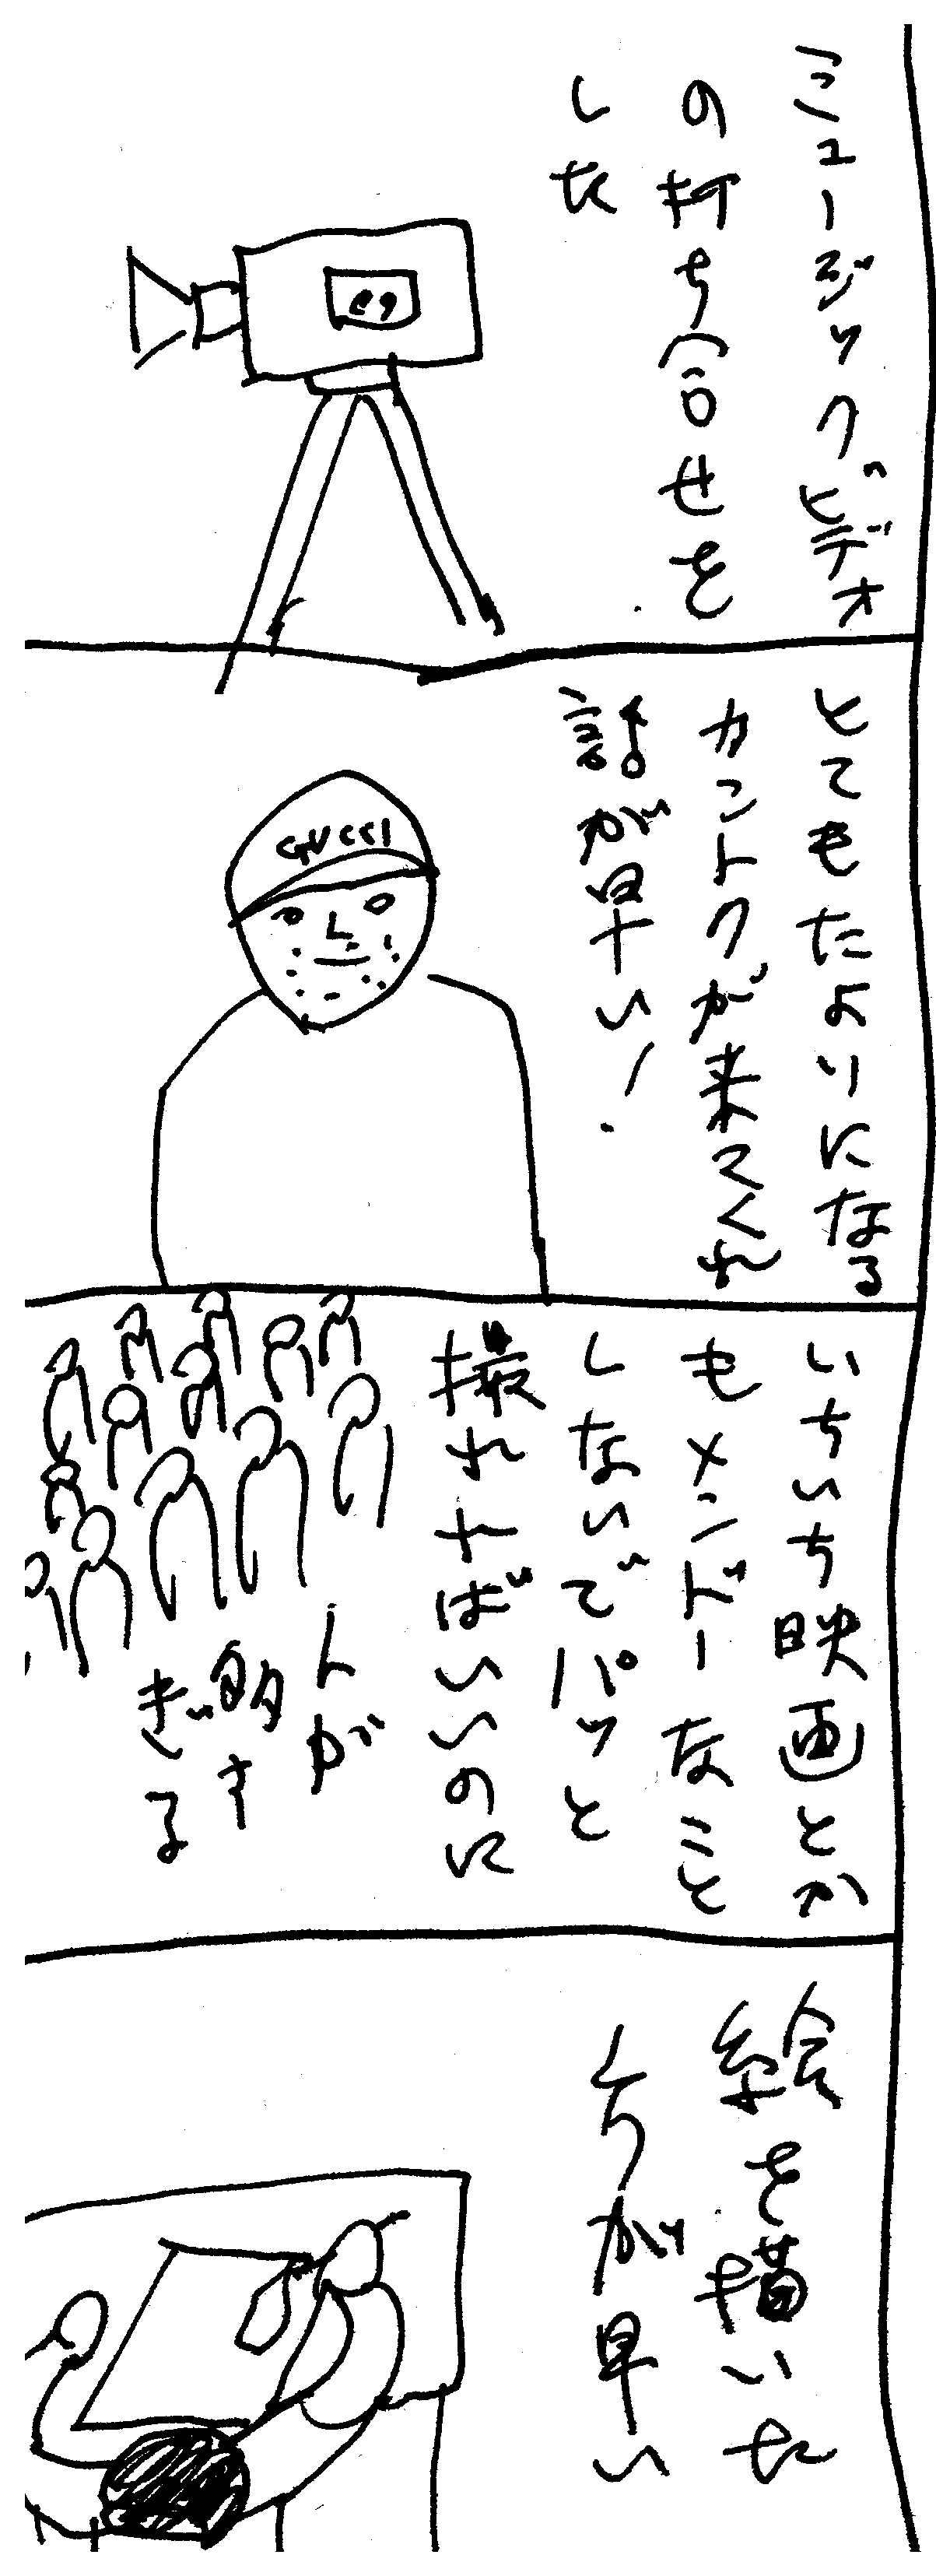 ミュージックビデオ
の打ち合せを
した
とてもたよりになる
カントクが来てくれ
話が早い!
GUCCI
いちいち映画とか
もメンドーなこと
しないでパッと
撮れればいいのに
人が
多す
ぎる
絵を描いた
方が早い